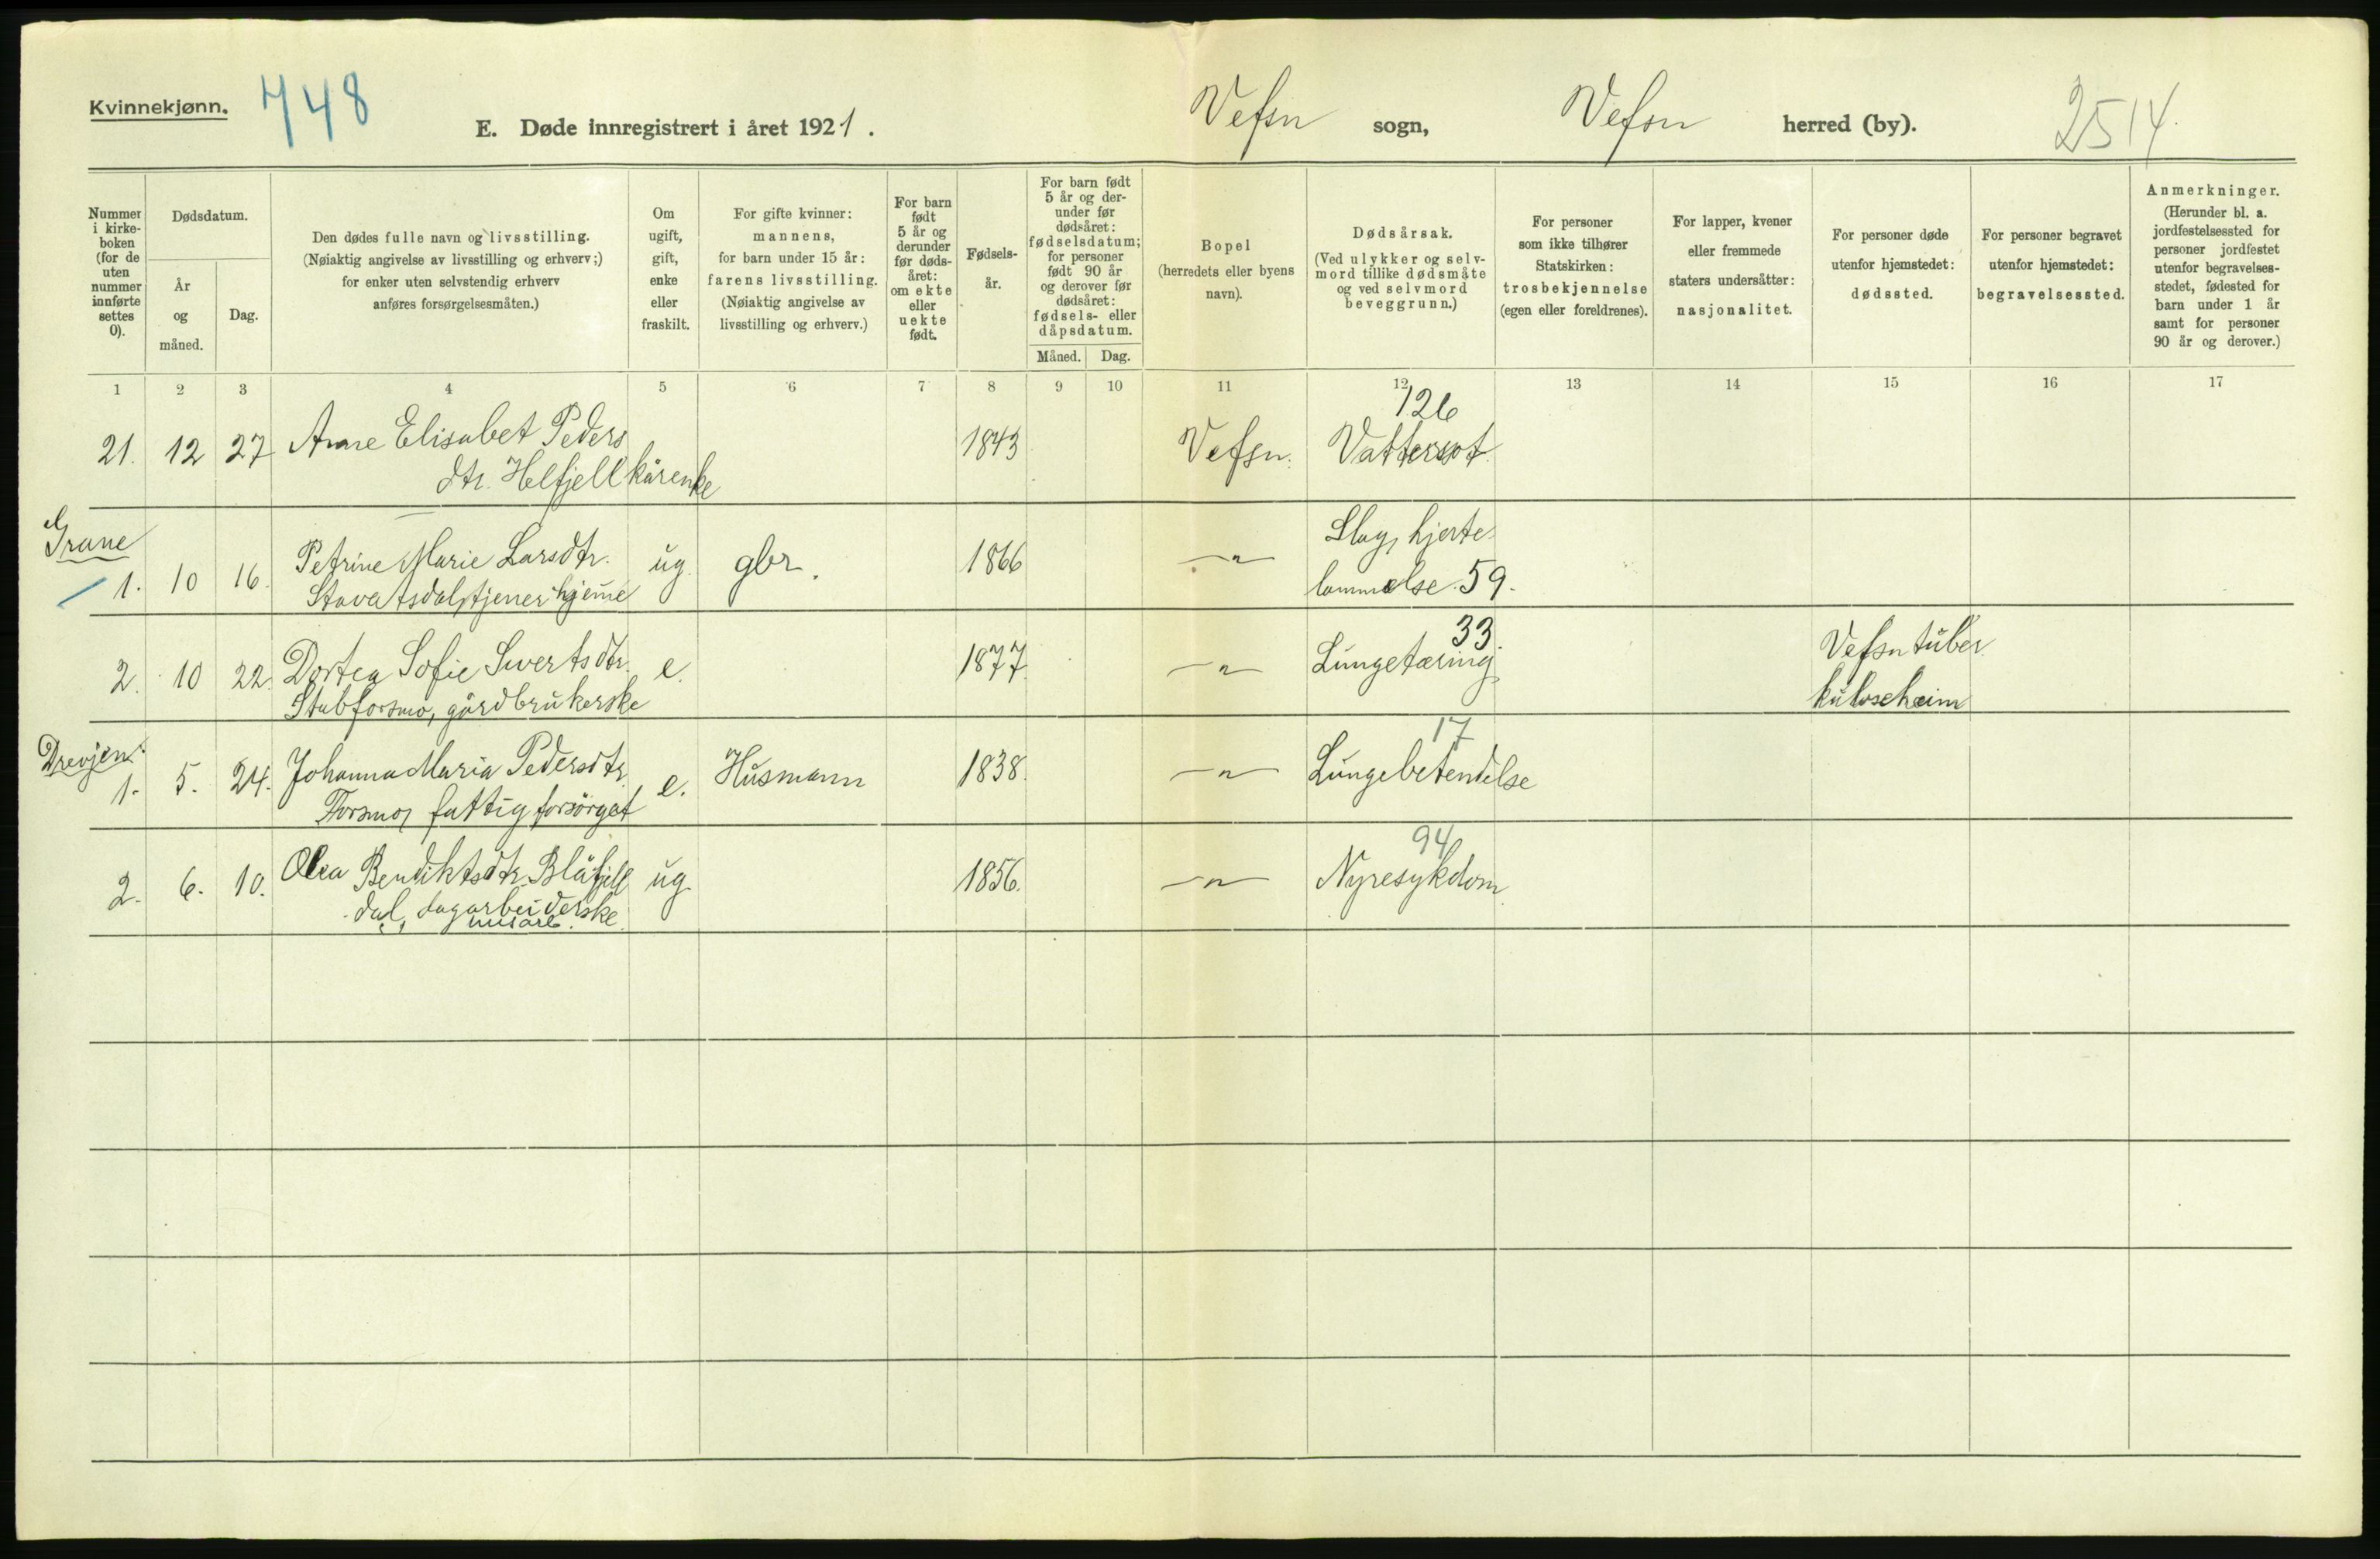 Kvinnekjønn. 748
E. Døde innregistrert i året 1921. Vefsn sogn, Vefsn herred (by). 2514.
Nummer i kirke-boken (for de uten nummer innførte settes 0).
Dødsdatum.
År og måned.
Dag.
Den dødes fulle navn og livsstilling.
(Nøiaktig angivelse av livsstilling og erhverv;)
for enker uten selvstendig erhverv
anføres forsørgelsesmåten.)
Om ugift, gift, enke eller fraskilt.
For gifte kvinner:
mannens,
for barn under 15 år:
farens livsstilling.
(Nøiaktig angivelse av
livsstilling og erhverv.)
For barn født 5 år og derunder før døds-året: om ekte eller uekte født.
Fødsels-år.
For barn født 5 år og der-under før dødsåret: fødselsdatum; for personer født 90 år og derover før dødsåret: fødsels- eller dåpsdatum.
Måned. Dag.
Bopel
(herredets eller byens
navn).
Dødsårsak.
(Ved ulykker og selv-
mord tillike dødsmåte
og ved selvmord
beveggrunn.)
For personer
som ikke tilhører
Statskirken:
trosbekjennelse
(egen eller foreldrenes).
For lapper, kvener
eller fremmede
staters undersåtter:
nasjonalitet.
For personer døde
utenfor hjemstedet:
dødssted.
For personer begravet
utenfor hjemstedet:
begravelsessted.
Anmerkninger.
(Herunder bl. a.
jordfestelsessted for
personer jordfestet
utenfor begravelses-
stedet, fødested for
barn under 1 år
samt for personer
90 år og derover.)
1 2 3 4 5 6 7 8 9 10 11 12 13 14 15 16 17
126
21. 12 27 Anne Elisabet Peders 1843 Vefsn. Vattersot
dtr. Helfjell kårenke
Grane
1. 10 16. Petrine Marie Larsdtr. ug. gbr. 1866 —"— Slag, hjerte-
tjener hjeme lammelse. 59.
33
2. 10 22. Dortea Sofie Sivertsdtr. e. 1877. —"— Lungetæring Vefsn tuber
Stabforsmo, gårdbrukerske kuloseheim
Drevjen. 17
1. 5. 24. Johanna Maria Pedersdtr. e. Husmann 1838. —"— Lungebetendelse
Forsmo, fattig forsörget
94
2. 6. 10. Olea Bendiktsdtr. Blåfjell ug. 1856. —"— Nyresykdom
dal, dagarbeiderske